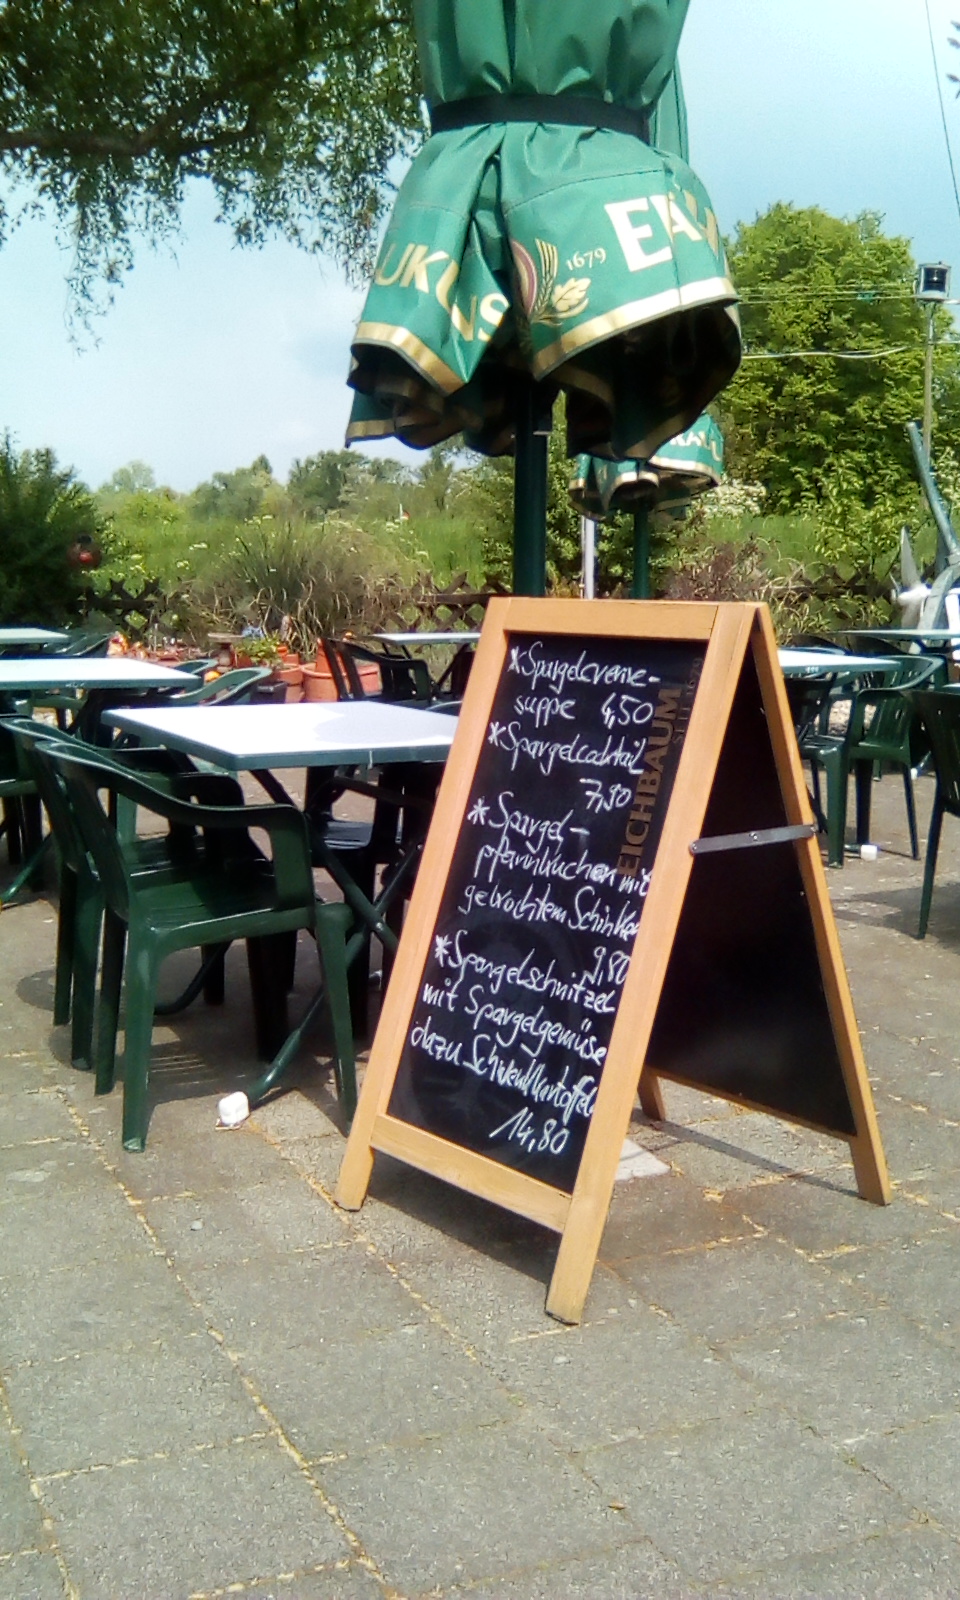 UKUNS
1679
*Spargelcreme-
suppe 4,50
*Spargelcocktail
7,90
*Spargel-
pfannkuchen mit
gekochtem Schinken
9,80
*Spargelschnitzel
mit Spargelgemüse
dazu Schwenkkartoffeln
14,80
EICHBAUM
SEIT 1679